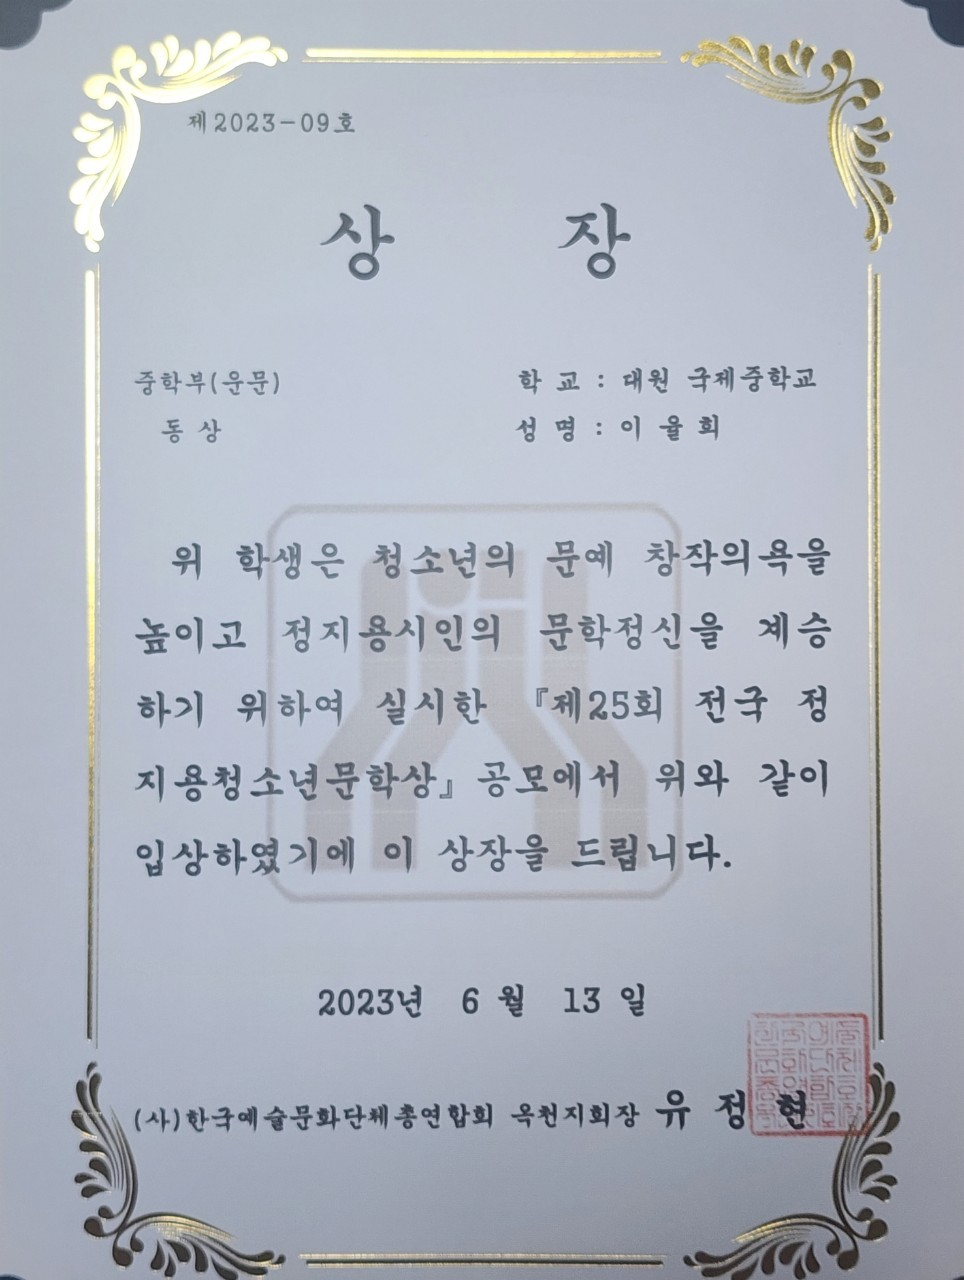 제2023-09호
상 장
중학부(운문)
동 상
학 교 : 대원 국제중학교
성 명 : 이 율 희
위 학생은 청소년의 문예 창작의욕을
높이고 정지용시인의 문학정신을 계승
하기 위하여 실시한 『제25회 전국 정
지용청소년문학상』 공모에서 위와 같이
입상하였기에 이 상장을 드립니다.
2023년 6 월 13 일
(사)한국예술문화단체총연합회 옥천지회장 유 정 현